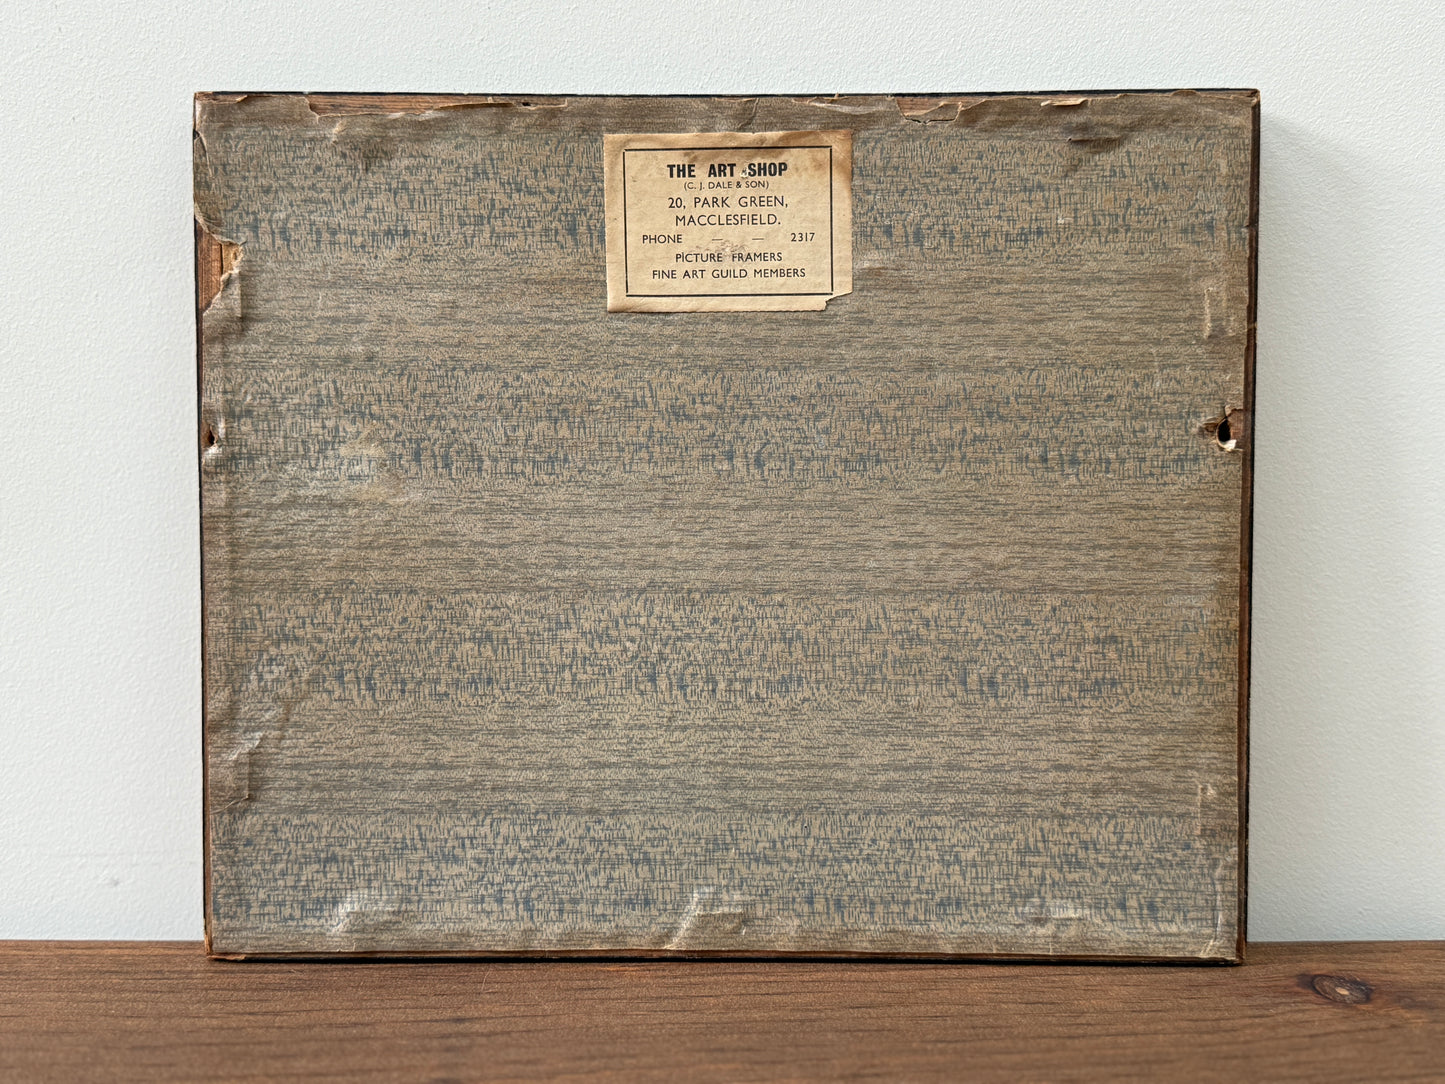 THE ART SHOP
(C. J. DALE & SON)
20, PARK GREEN,
MACCLESFIELD.
PHONE — — 2317
PICTURE FRAMERS
FINE ART GUILD MEMBERS